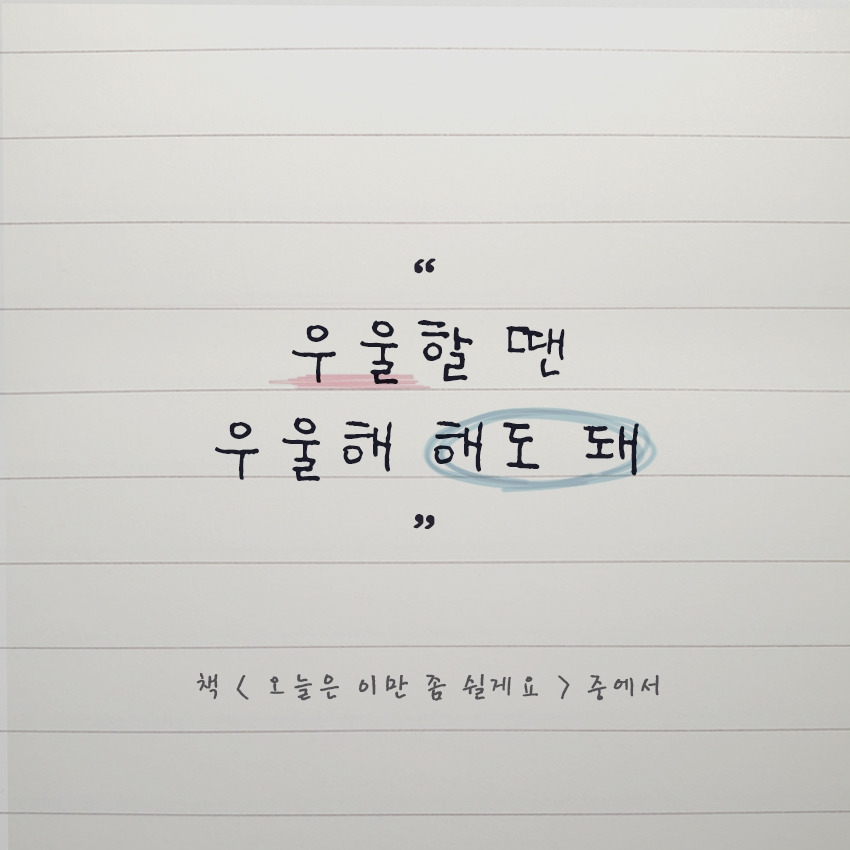 “
우울할 땐
우울해 해도 돼
”
책 < 오늘은 이만 좀 쉴게요 > 중에서